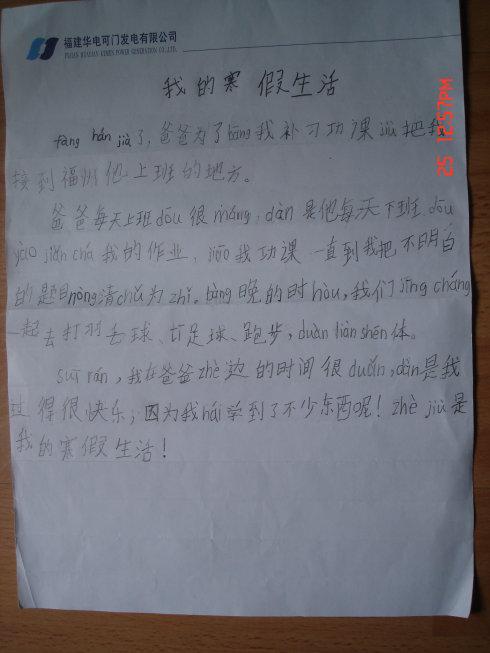 福建华电可门发电有限公司
FUJIAN HUADIAN KEMEN POWER GENERATION CO.,LTD.
我的寒假生活
fàng hán jià了，爸爸为了bāng我补习功课jiù把我
接到福州他上班的地方。
爸爸每天上班dōu很máng，dàn是他每天下班dōu
yào jiǎn chá我的作业，jiāo我功课一直到我把不明白
的题目nòng清chǔ为zhǐ。bàng晚的时hòu，我们jīng cháng
一起去打羽毛球、打足球、跑步，duàn liàn shēn体。
suī rán，我在爸爸zhè边的时间很duǎn，dàn是我
过得很快乐；因为我hái学到了不少东西呢！zhè jiù是
我的寒假生活！
25 12:57PM